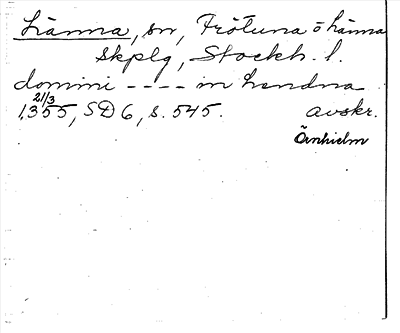 Länna, sn, Frötuna o Länna
Skplg, Stockh. l.
domini - - - - in Lendna
21/3
1355, SD 6, s. 545. avskr.
Örnhielm